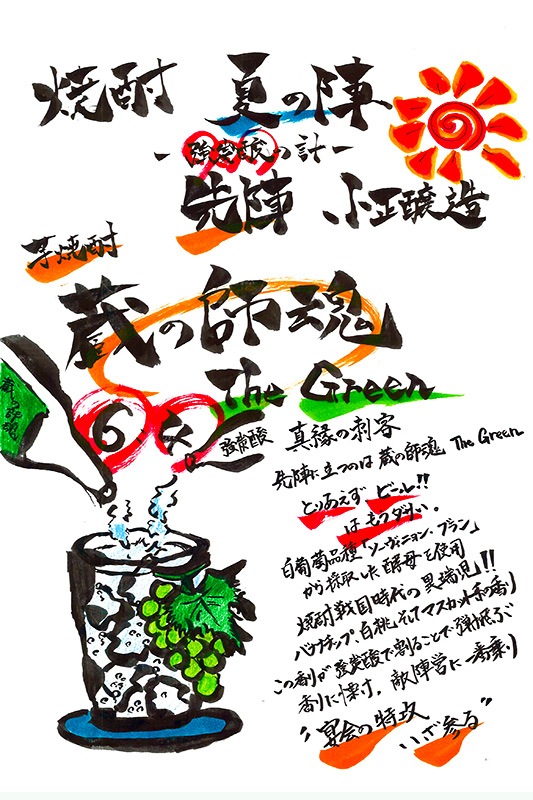 焼酎 夏の陣
- 強炭酸の計 -
先陣 小正醸造
芋焼酎
蔵の師魂
The Green
蔵の師魂
6 4
強炭酸
真緑の刺客
先陣に立つのは 蔵の師魂 The Green
とりあえず ビール!!
はもうダサい。
白葡萄品種「ソーヴィニョン・ブラン」
から採取した酵母を使用
焼酎戦国時代の異端児!!
バナナチップ、白桃、そしてマスカット系の香り
この香りが強炭酸で割ることで弾け飛ぶ
香りに懐す。敵陣営に一番乗り
"宴会の特攻
いざ参る"